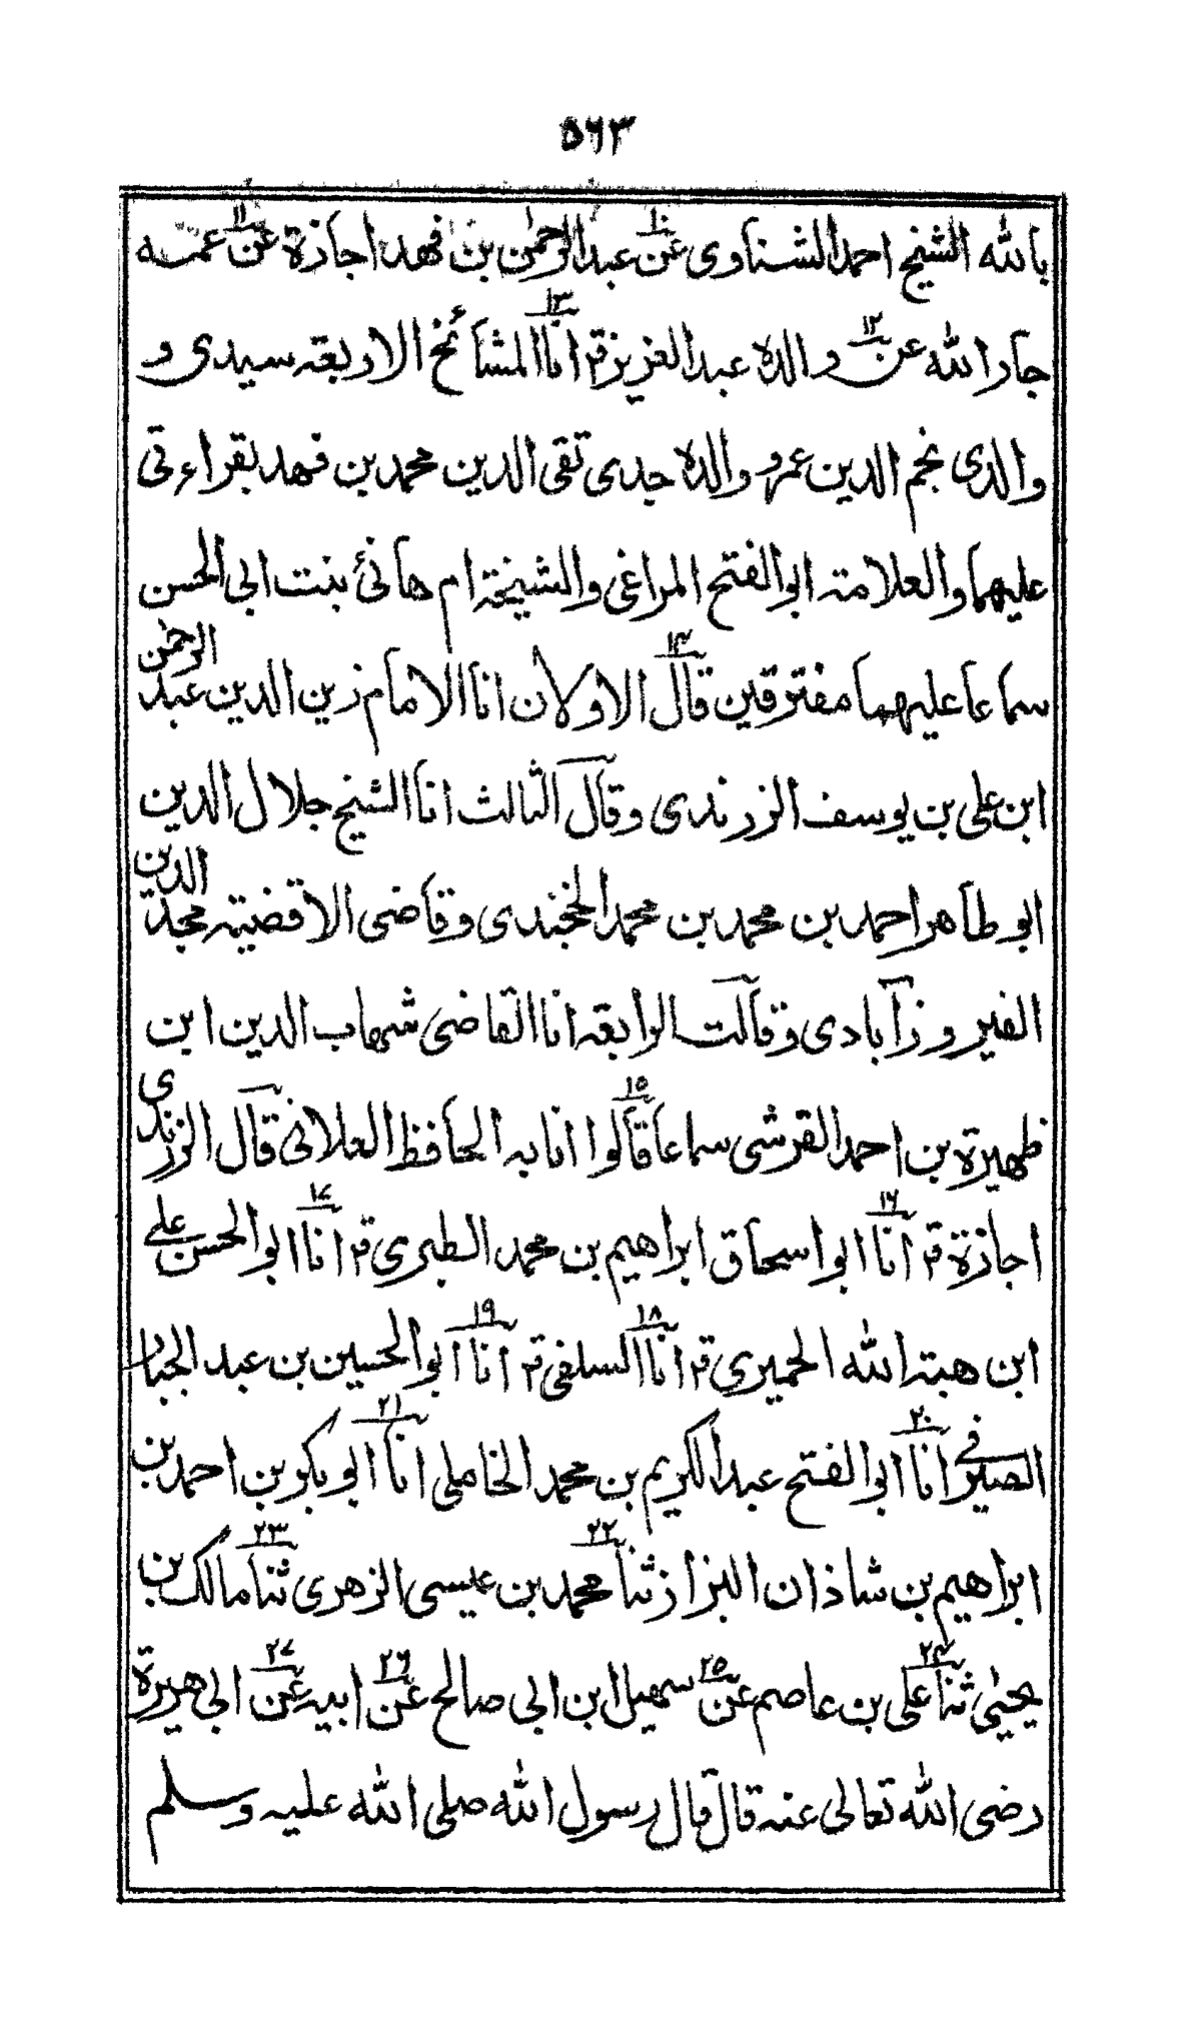 ۵۶۳
بالله الشيخ احمد الشناوى عن۱۰ عبد الرحمٰن بن فهد اجازة عن۱۱ عمه
جار الله عن۱۲ والده عبد العزيز قر انا۱۳ المشائخ الاربعة سيدى و
والدى نجم الدين عمرو والده جدى تقى الدين محمد بن فهد بقراءتى
عليهما والعلامة ابو الفتح المراغى والشيخة ام هانئ بنت ابى الحسن
سماعا عليهما مفترقين قال۱۴ الاولان انا الامام زين الدين عبد الرحمٰن
ابن على بن يوسف الزرندى وقال الثالث انا الشيخ جلال الدين
ابو طاهر احمد بن محمد بن محمد الخجندى وقاضى الاقضية مجد الدين
الفيروزآبادى وقالت الرابعة انا القاضى شهاب الدين ابن
ظهيرة بن احمد القرشى سماعا قالوا۱۵ انا به الحافظ العلائى قال الزرندى
اجازة قر انا۱۶ ابو اسحاق ابراهيم بن محمد الطبرى قر انا۱۷ ابو الحسن على
ابن هبة الله الحميرى قر انا۱۸ السلفى قر انا۱۹ ابو الحسين بن عبد الجبار
الصيرفى انا۲۰ ابو الفتح عبد الكريم بن محمد الخاملى انا۲۱ ابو بكر بن احمد بن
ابراهيم بن شاذان البزاز ثنا۲۲ محمد بن عيسى الزهرى ثنا۲۳ مالك بن
يحيٰى ثنا۲۴ على بن عاصم عن۲۵ سهيل ابن ابى صالح عن۲۶ ابيه عن۲۷ ابى هريرة
رضى الله تعالى عنه قال قال رسول الله صلى الله عليه وسلم